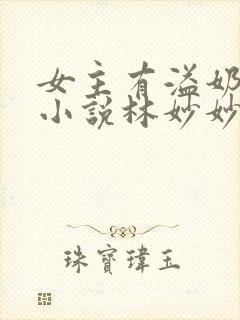 女主有溢奶
小說林妙妙
珠寶瑋玉